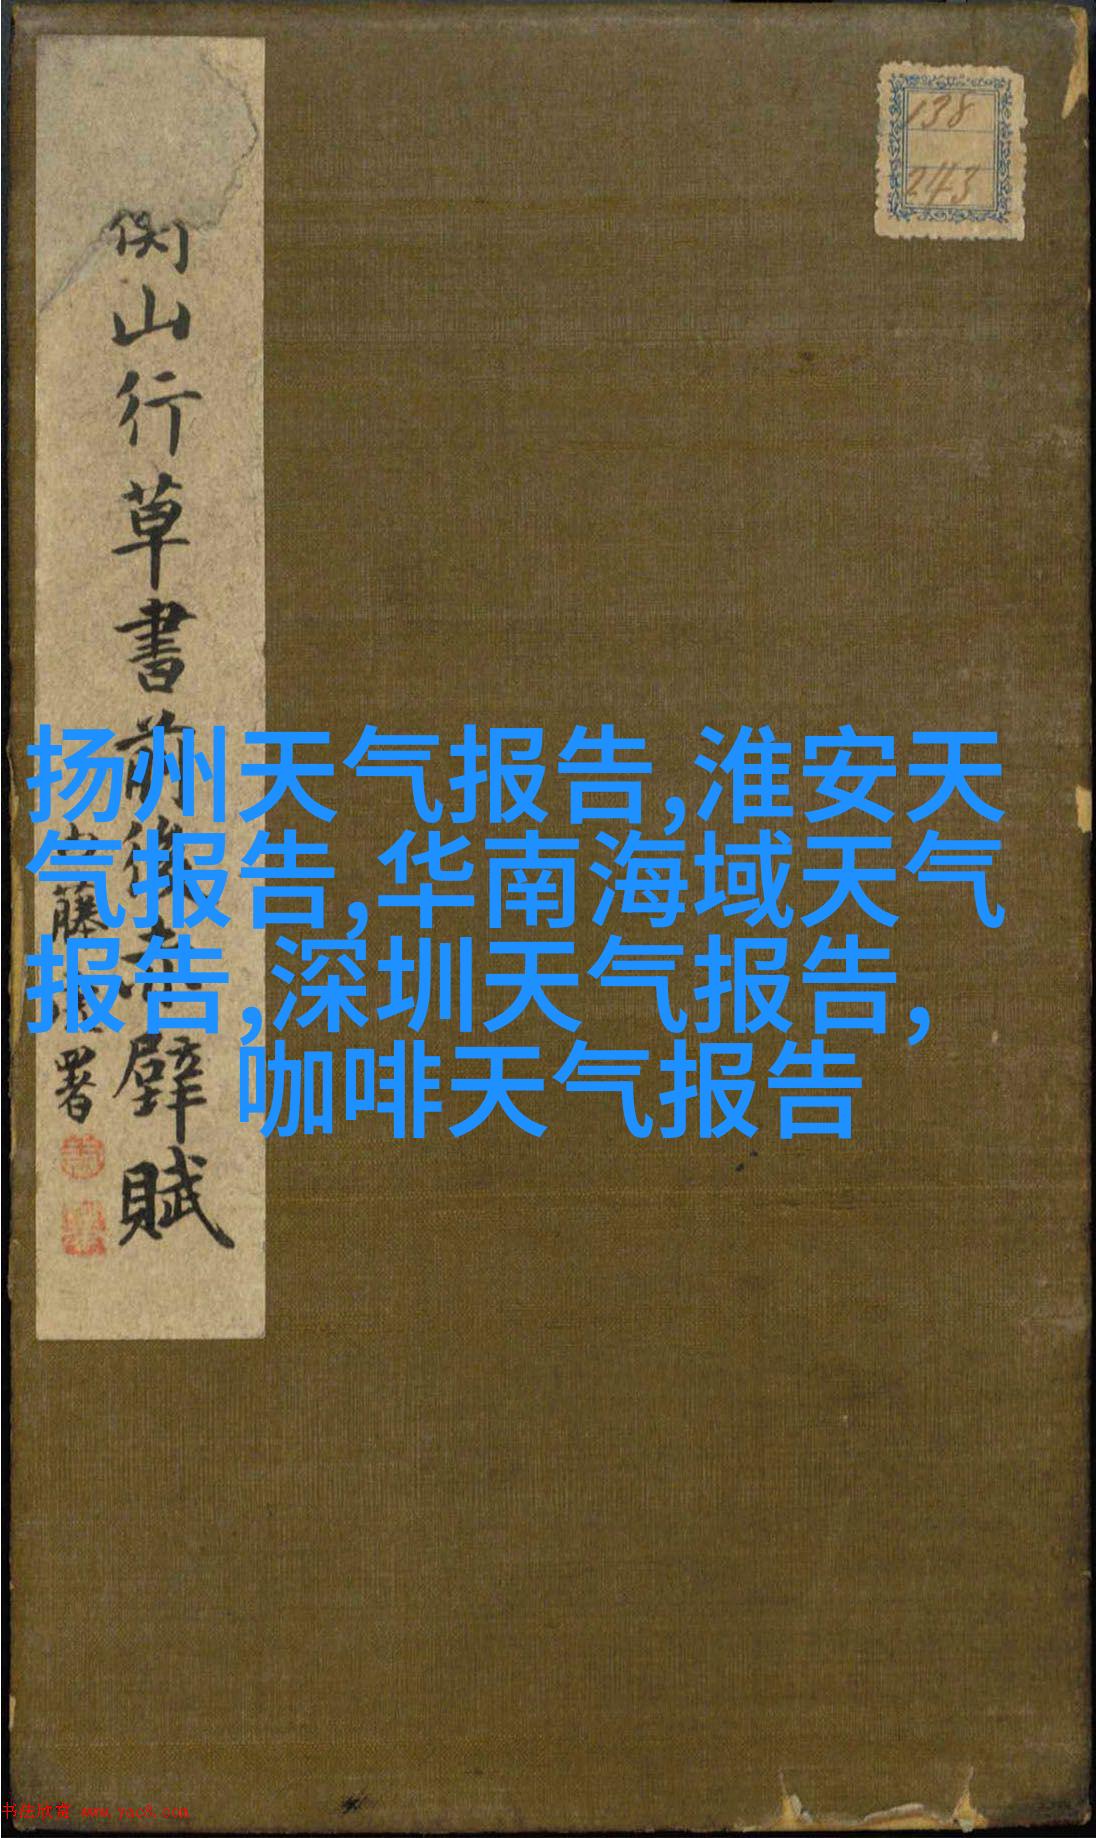 138
243
山行草書前後赤壁賦
藤
署
扬州天气报告,淮安天
气报告,华南海域天气
报告,深圳天气报告,
咖啡天气报告
书法欣赏 www.yac8.com